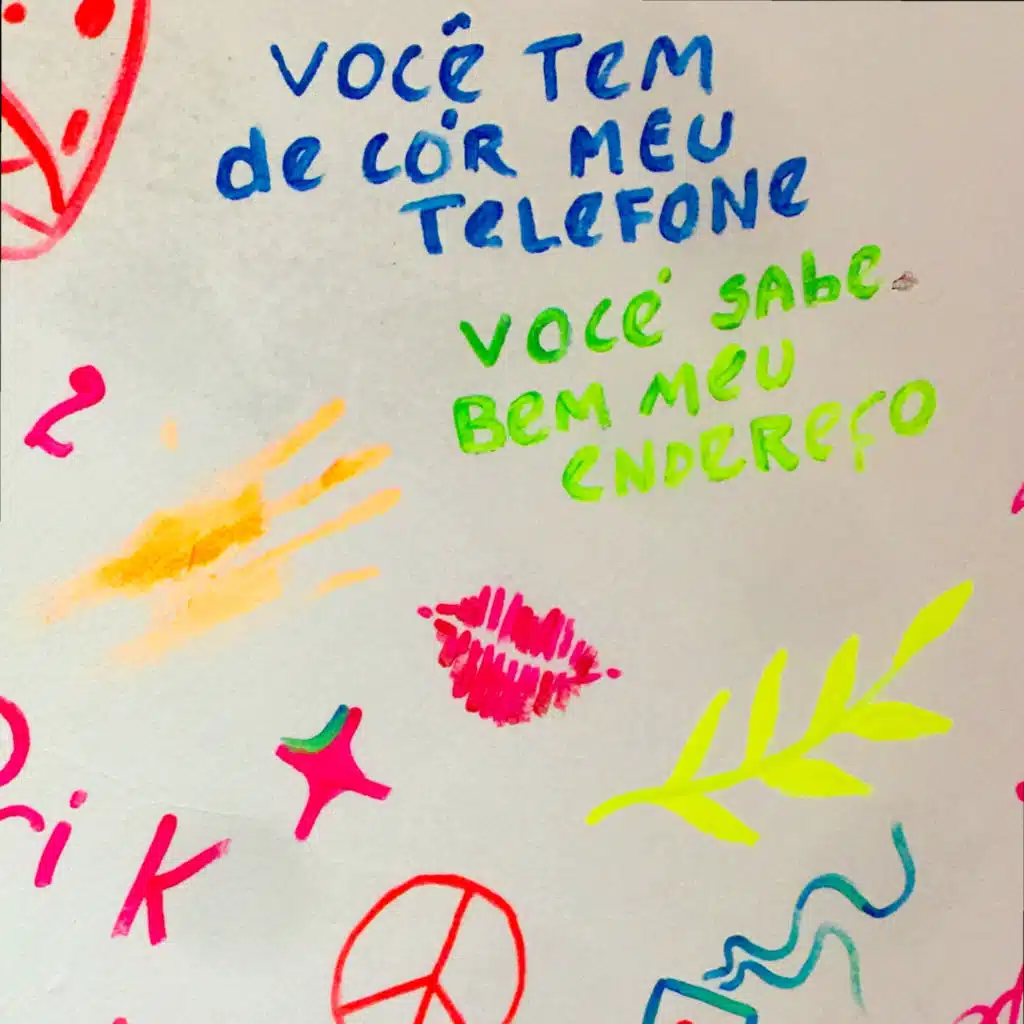 VOCÊ TEM
de CÓR MEU
TELEFONE
VOCÉ SABE
BEM MEU
ENDEREÇO
2
ri K